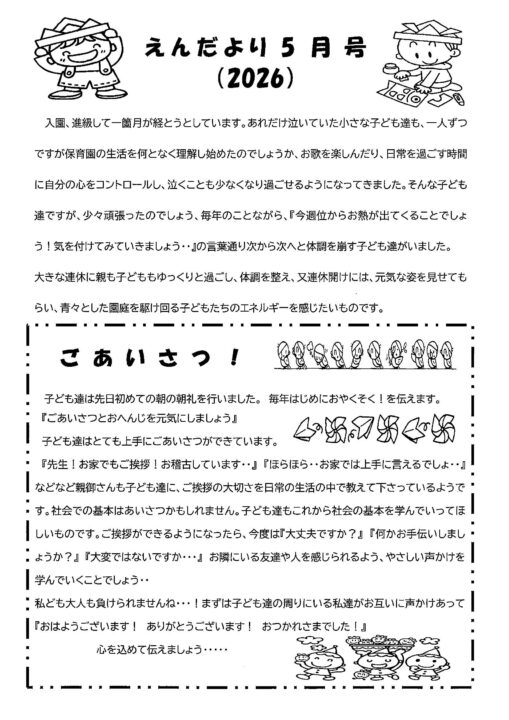 えんだより5月号
(2026)
入園、進級して一箇月が経とうとしています。あれだけ泣いていた小さな子ども達も、一人ずつ
ですが保育園の生活を何となく理解し始めたのでしょうか、お歌を楽しんだり、日常を過ごす時間
に自分の心をコントロールし、泣くことも少なくなり過ごせるようになってきました。そんな子ども
達ですが、少々頑張ったのでしょう、毎年のことながら、『今週位からお熱が出てくることでしょ
う！気を付けてみていきましょう・・』の言葉通り次から次へと体調を崩す子ども達がいました。
大きな連休に親も子どももゆっくりと過ごし、体調を整え、又連休開けには、元気な姿を見せても
らい、青々とした園庭を駆け回る子どもたちのエネルギーを感じたいものです。
ごあいさつ！
子ども達は先日初めての朝の朝礼を行いました。 毎年はじめにおやくそく！を伝えます。
『ごあいさつとおへんじを元気にしましょう』
子ども達はとても上手にごあいさつができています。
『先生！お家でもご挨拶！お稽古しています・・』『ほらほら・・お家では上手に言えるでしょ・・』
などなど親御さんも子ども達に、ご挨拶の大切さを日常の生活の中で教えて下さっているようで
す。社会での基本はあいさつかもしれません。子ども達もこれから社会の基本を学んでいってほ
しいものです。ご挨拶ができるようになったら、今度は『大丈夫ですか？』『何かお手伝いしまし
ょうか？』『大変ではないですか・・・』 お隣にいる友達や人を感じられるよう、やさしい声かけを
学んでいくことでしょう・・
私ども大人も負けられませんね・・・！まずは子ども達の周りにいる私達がお互いに声かけあって
『おはようございます！ ありがとうございます！ おつかれさまでした！』
心を込めて伝えましょう・・・・・